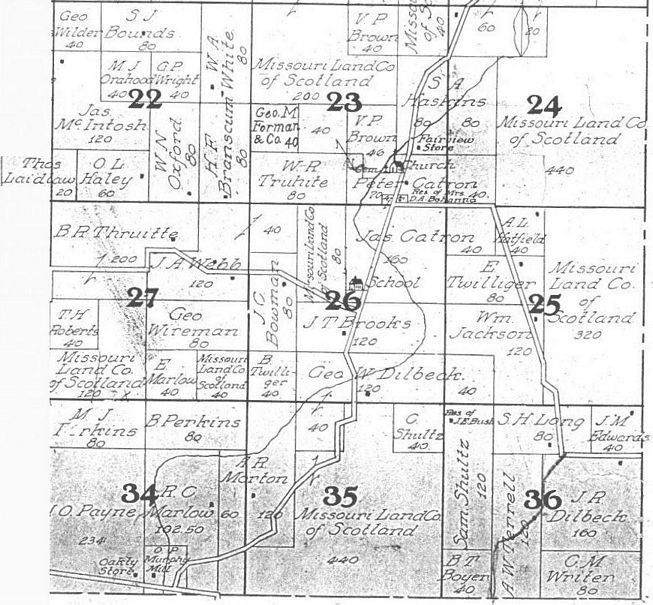 Geo
Wilder
40
S J
Bounds
80
M J
Orahood
40
G P
Wright
40
22
W A
White
80
Jas.
McIntosh
120
W N
Oxford
80
H. F.
Branscum
80
Thos
Laidlaw
20
O L
Haley
60
V. P.
Brown
40
Missouri Land Co
of Scotland
200
23
Geo. M
Forman
& Co. 40
40
V. P.
Brown
40
W R
Truhite
80
60
20
S A
Haskins
80
80
24
Missouri Land Co
of Scotland
440
Fairview
Store
Church
Peter Catron
70
40
Res of Mrs
D.A. Bohannon
B. R. Thruitte
200
40
J A Webb
120
27
Missouri Land Co.
of Scotland
80
Jas. Catron
160
School
26
A L
Hatfield
40
40
E
Twilliger
80
Missouri
Land Co.
of
Scotland
320
25
T H
Roberts
40
Geo
Wireman
80
J. C.
Bowman
80
J T Brooks
120
Wm.
Jackson
120
Missouri
Land Co.
of Scotland
120
E
Marlow
40
Missouri
Land Co
of
Scotland
40
B
Twilli-
ger
40
Geo W Dilbeck
120
40
M. J
Perkins
80
B Perkins
80
40
C
Shultz
40
Res of
J.E. Bush
S. H Long
80
J. M
Edwards
40
34
J. O. Payne
234
R C
Marlow
102.50
60
A R
Morton
120
35
Missouri Land Co.
of Scotland
440
Sam. Shultz
120
A W Terrell
120
36
J R
Dilbeck
160
Oakly
Store
O P
Murphy
Mill
B T
Boyer
40
C. M
Writer
80